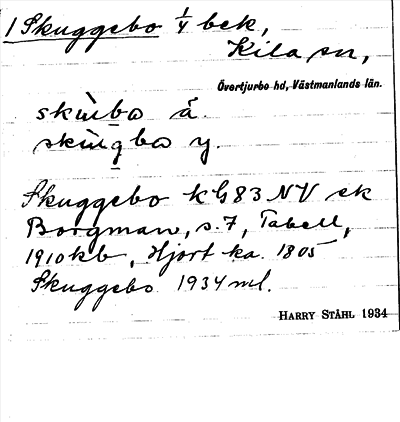 1 Skuggebo 1/4 bek,
Kila sn,
Övertjurbo hd, Västmanlands län.
skùbo ä.
skùgbo y.
Skuggebo KG83 NV ek
Borgman, s. 7, Tabell,
1910kb, Hjort ka. 1805
Skuggebo 1934 ml.
HARRY STÅHL 1934